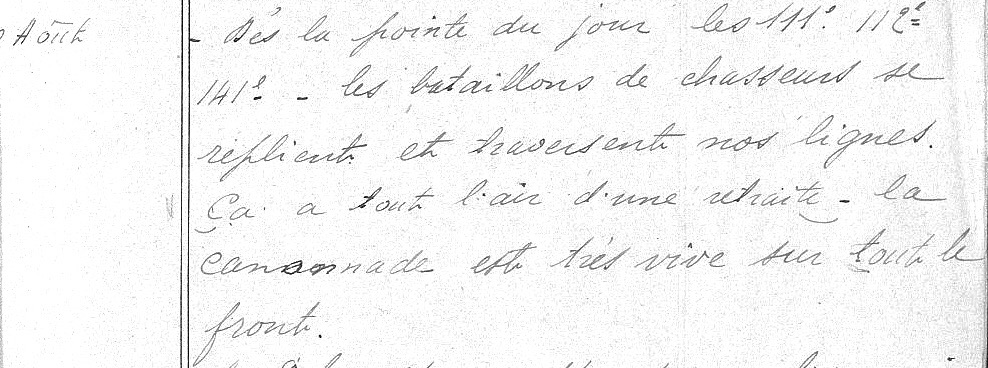 Août
- Dès la pointe du jour les 111e. 112e
141e - les bataillons de chasseurs se
replient et traversent nos lignes.
Ça a tout l'air d'une retraite - la
canonnade est très vive sur tout le
front.